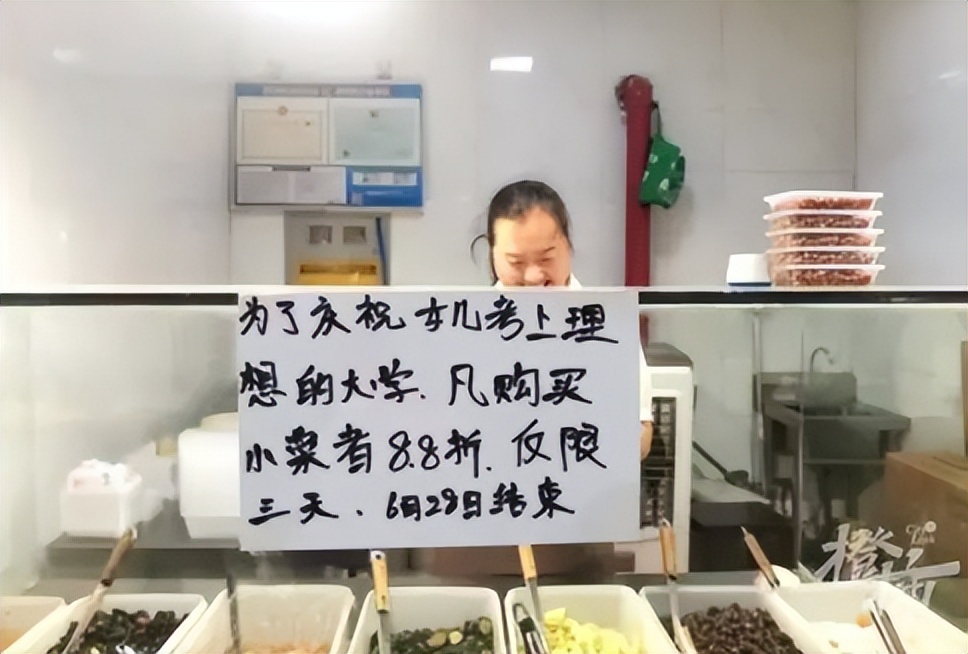 为了庆祝女儿考上理
想的大学.凡购买
小菜者8.8折.仅限
三天.6月28日结束
橙柿